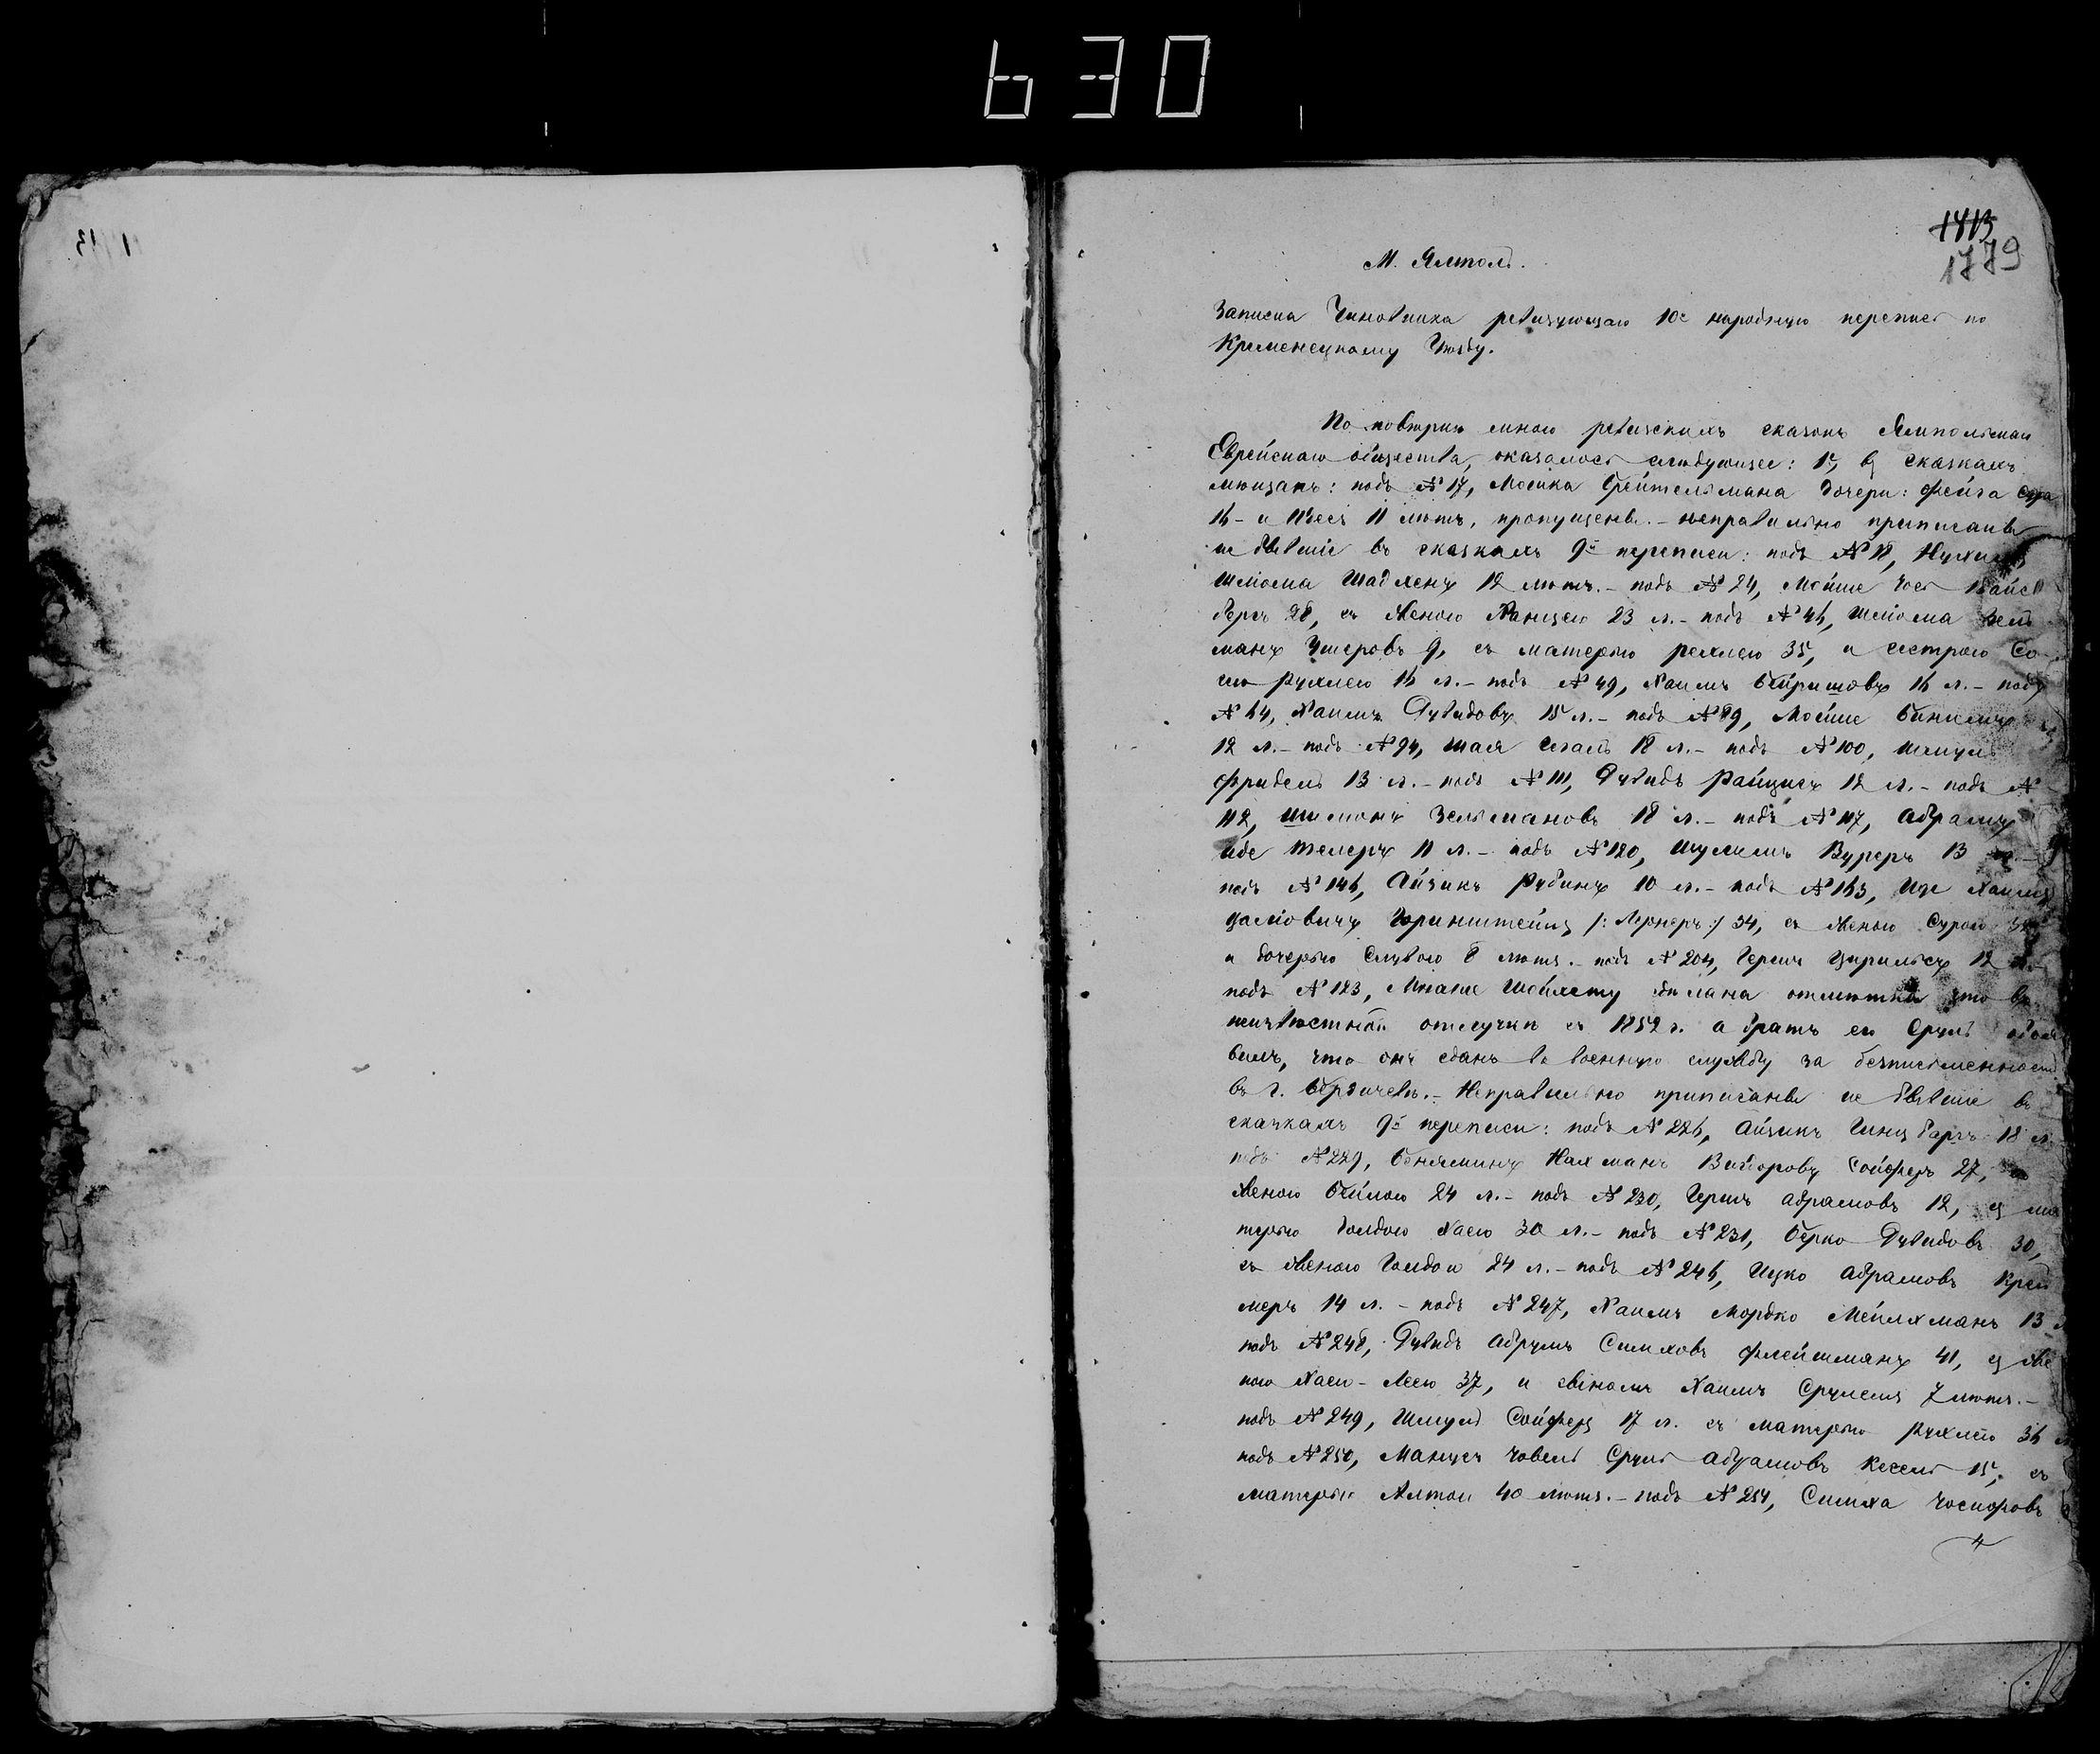 630
1413
1779
М. Ямполь.
Записка Чиновника ревизующаго 10ю народную перепись по
Кременецкому Уѣзду.
По повѣркѣ мною ревизскихъ сказокъ Ямпольскаго
Еврейскаго общества, оказалось слѣдующее: 1е, въ сказкахъ
мѣщанъ: подъ № 17, Мошка Фейтельмана дочери: Фейга Сура
16 - и Песя 11 лѣтъ, пропущены. - неправильно приписаны
не бывшіе въ сказкахъ 9й переписи: подъ № 18, Нухимъ
Шліома Шадхенъ 12 лѣтъ. - подъ № 24, Мойше Іось Вайс
бергъ 28, съ женою Ханцею 23 л. - подъ № 46, Шліома Зель
манъ Ушеровъ 9, съ матерью Рейзлею 35, и сестрою Со
сю Рухлею 16 л. - подъ № 49, Хаимъ Беришовъ 16 л. - подъ
№ 64, Хаимъ Дувидовъ 15 л. - подъ № 89, Мойше
12 л. - подъ № 94, Шая Сегаль 18 л. - подъ № 100, Шмуль
Фридель 13 л. - подъ № 111, Дувидъ Райцисъ 12 л. - подъ №
112, Шимонъ Зельмановъ 18 л. - подъ № 117, Абрамъ
Иде Телеръ 11 л. - подъ № 120, Шулимъ Вуреръ 13
подъ № 146, Айзикъ Рубинъ 10 л. - подъ № 163, Иде Хаимъ
Горинштейнъ /: Лернеръ :/ 34, съ женою Сурою
и дочерью Слувою 8 лѣтъ. - подъ № 204, Гершъ Цирульсъ 12
подъ № 123, Шойхету сдѣлана отмѣтка что въ
неизвѣстной отлучкѣ съ 1852 г. а братъ его Сруль объя
вилъ, что онъ сданъ въ военную службу за безписьменность
въ г. Бердичевѣ. - Неправильно приписаны не бывшіе въ
сказкахъ 9й переписи: подъ № 226, Айзикъ Гинзбаргъ 18 л.
подъ № 229, Беняминъ Нахманъ Сойферъ 27,
женою Бейлою 24 л. - подъ № 230, Гершъ Абрамовъ 12, съ ма
терью Голдою Хаею 30 л. - подъ № 231, Берко Дувидовъ 30,
съ женою Голдою 24 л. - подъ № 246, Ицко Абрамовъ Крей
меръ 14 л. - подъ № 247, Хаимъ Мордко Мейлхманъ 13 л
подъ № 248, Дувидъ Абрумъ Симховъ Флейшманъ 41, съ же
ною Хаею - Леею 37, и сыномъ Хаимъ Срулемъ 7 лѣтъ. -
подъ № 249, Шмуль Сойферъ 17 л. съ матерью Рухлею 36 л
подъ № 250, Манусъ Іовель Сруль Абрамовъ Кесель 15, съ
матерью Алтою 40 лѣтъ. - подъ № 254, Симха Іосифовъ